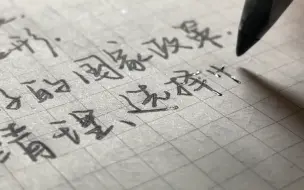 形.
的国家政策.
清理、选择